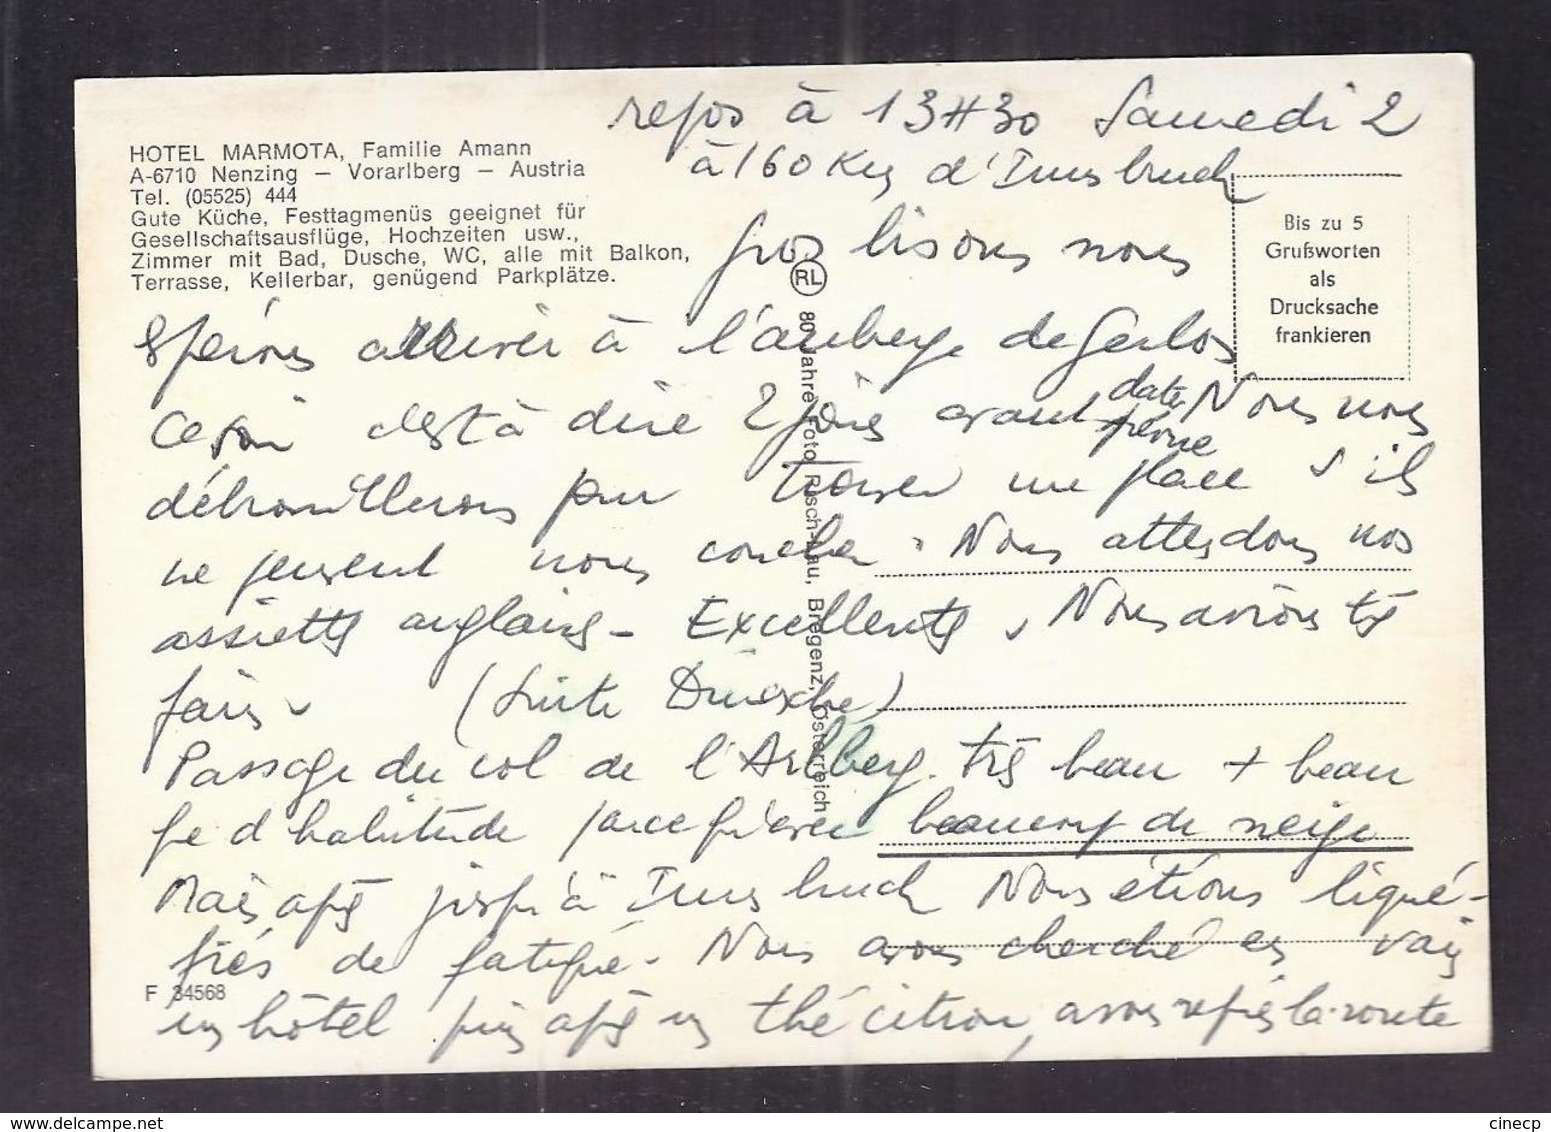 repos à 13H30 Samedi 2
à 160 Km d'Innsbruck
HOTEL MARMOTA, Familie Amann
A-6710 Nenzing — Vorarlberg — Austria
Tel. (05525) 444
Gute Küche, Festtagmenüs geeignet für
Gesellschaftsausflüge, Hochzeiten usw.,
Zimmer mit Bad, Dusche, WC, alle mit Balkon,
Terrasse, Kellerbar, genügend Parkplätze.
Bis zu 5
Grußworten
als
Drucksache
frankieren
Gros bisous nous
RL
80 Jahre Foto Risch-Lau, Bregenz, Österreich
espérons arriver à l'auberge de Gerlos
ce soir c'est à dire 2 jours avant date prévue Nous nous
débrouillerons pour trouver une place s'ils
ne peuvent nous coucher. Nous attendons nos
assiettes anglaises - Excellentes, Nous avions très
faim. (Suite Dimanche)
Passage du col de l'Arlberg. très beau + beau
que d'habitude parce qu'avec beaucoup de neige
Mais après jusqu'à Innsbruck Nous étions liqué-
fiés de fatigue. Nous avons cherché en vain
un hôtel puis après un thé citron, avons repris la route
F 34568
www.delcampe.net
cinecp